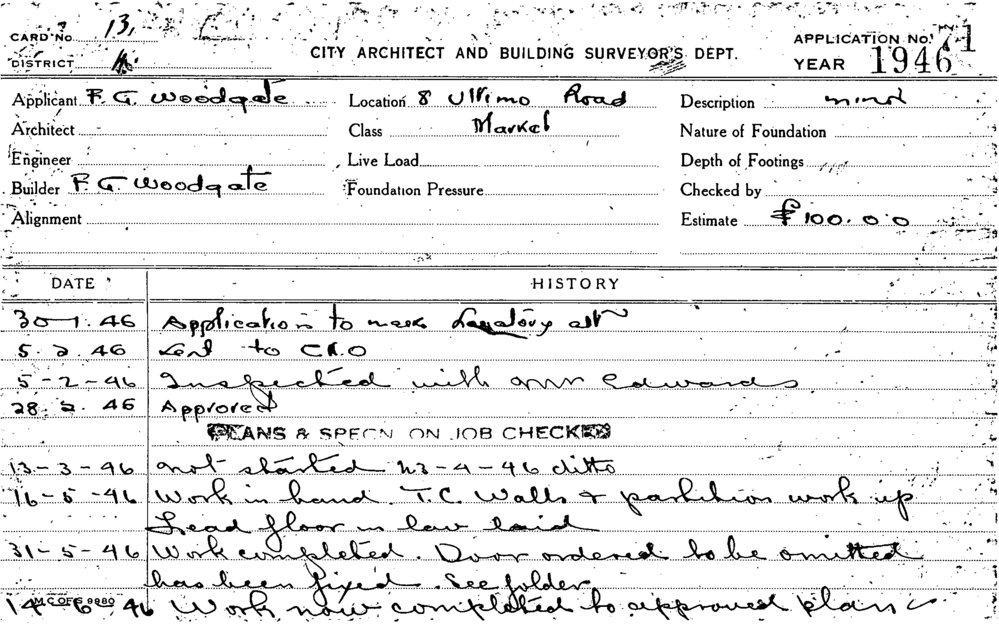 CARD No. 13.
DISTRICT
CITY ARCHITECT AND BUILDING SURVEYOR'S DEPT.
APPLICATION No. 71
YEAR 1946
Applicant F. G. Woodgate Location 8 Ultimo Road Description minor
Architect Class Market Nature of Foundation
Engineer Live Load Depth of Footings
Builder F. G. Woodgate Foundation Pressure Checked by
Alignment Estimate £100.0.0
DATE HISTORY
30-1.46 Application to make Lavatory altn
5.2.46 Sent to
5-2-46 Inspected with Mr Edwards
28.2.46 Approved
PLANS & SPECN ON JOB CHECKED
13-3-46 Not started 23-4-46 ditto
16-5-46 Work in hand. T.C. Walls & partition work up
Lead floor in lav laid
31-5-46 Work completed. Door ordered to be omitted
has been fixed. See folder
M.C. OF S 9980
14-6-46 Work now completed to approved plan